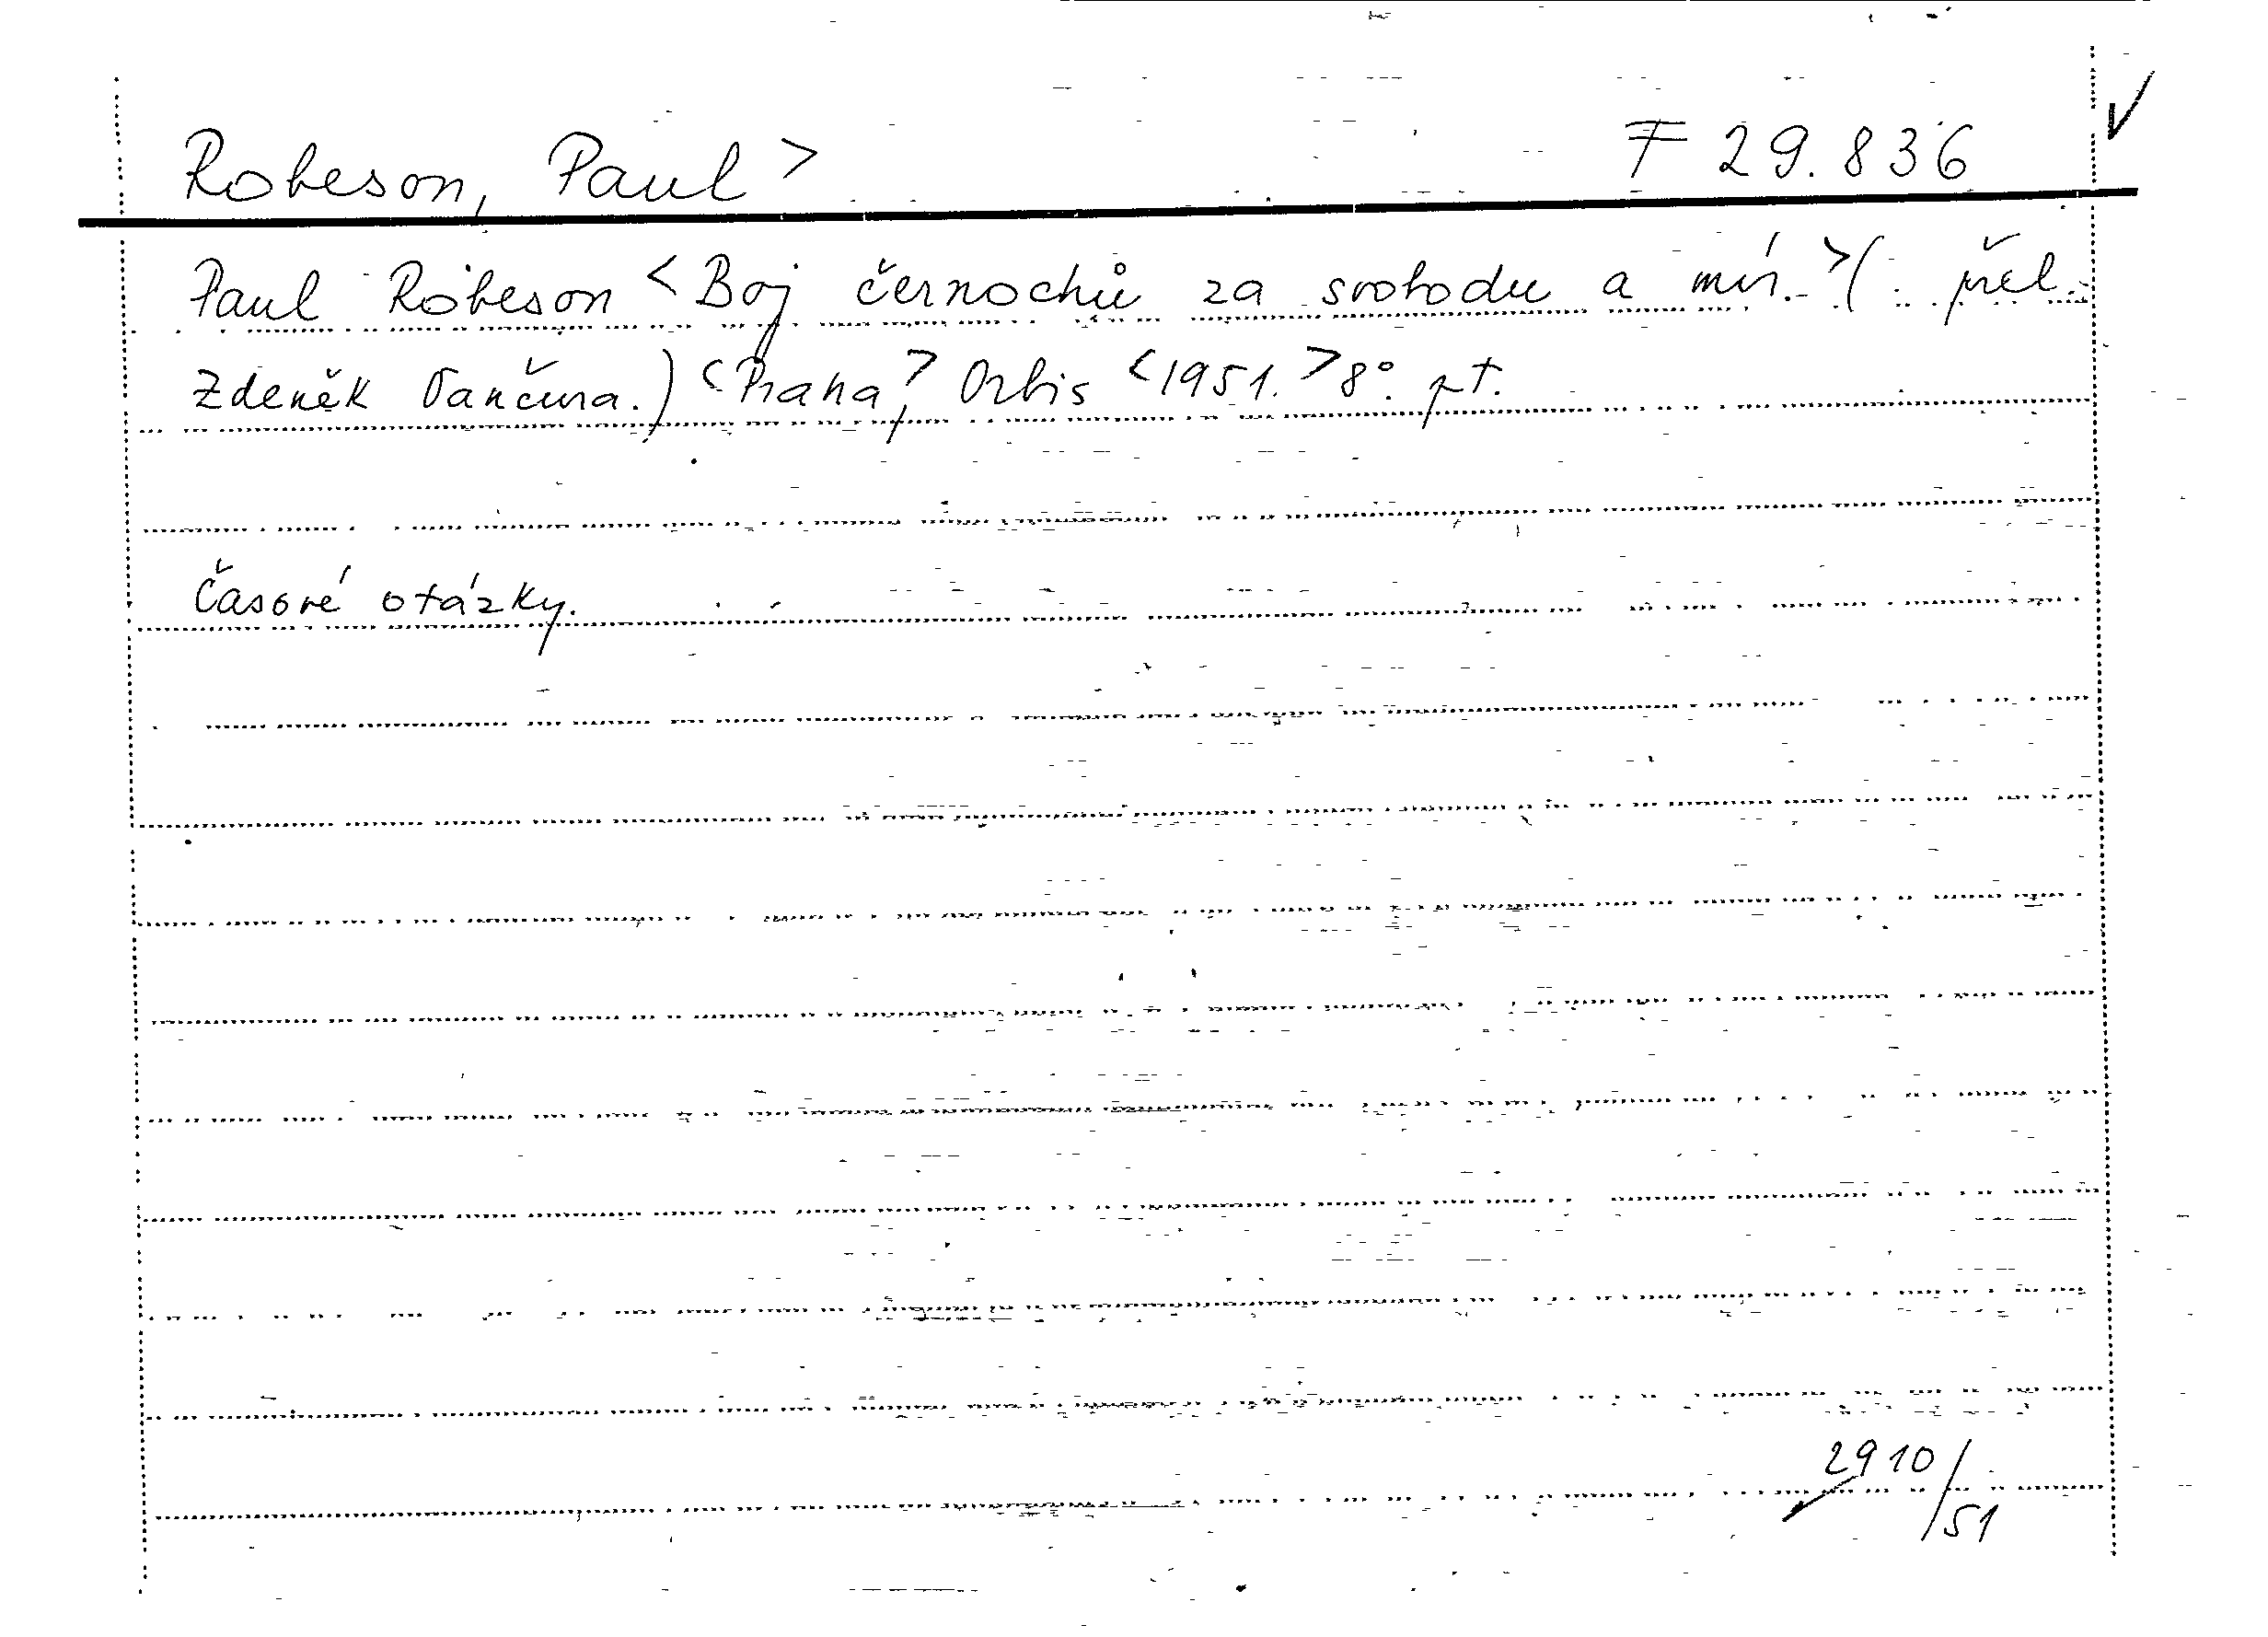 Robeson, Paul > F 29.836
Paul Robeson <Boj černochů za svobodu a mír.>( přel.
Zdeněk Vančura.) <Praha,> Orbis <1951.> 8°. pt.
Časové otázky.
2910/51